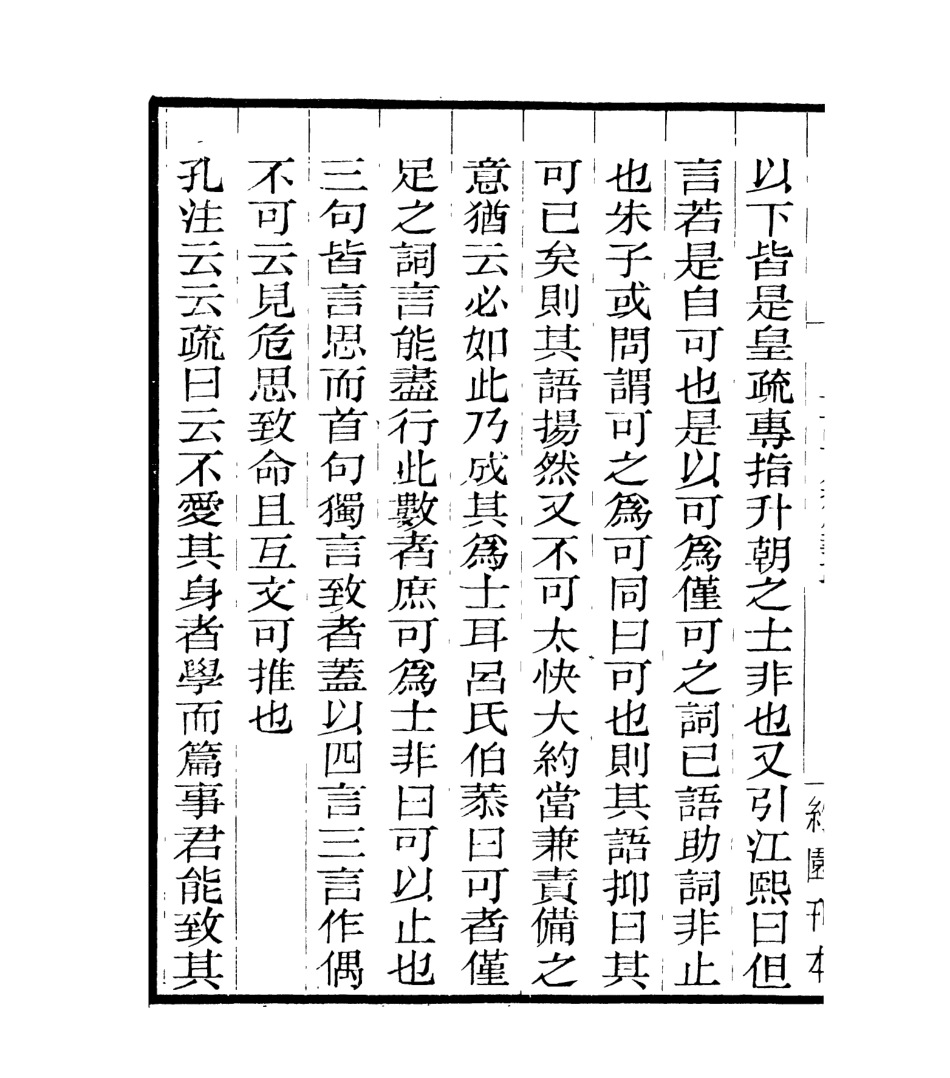 以下皆是皇疏專指升朝之士非也又引江熙曰但
言若是自可也是以可爲僅可之詞已語助詞非止
也朱子或問謂可之爲可同曰可也則其語抑曰其
可已矣則其語揚然又不可太快大約當兼責備之
意猶云必如此乃成其爲士耳呂氏伯恭曰可者僅
足之詞言能盡行此數者庶可爲士非曰可以止也
三句皆言思而首句獨言致者蓋以四言三言作偶
不可云見危思致命且互文可推也
孔注云云疏曰云不愛其身者學而篇事君能致其
園刊本